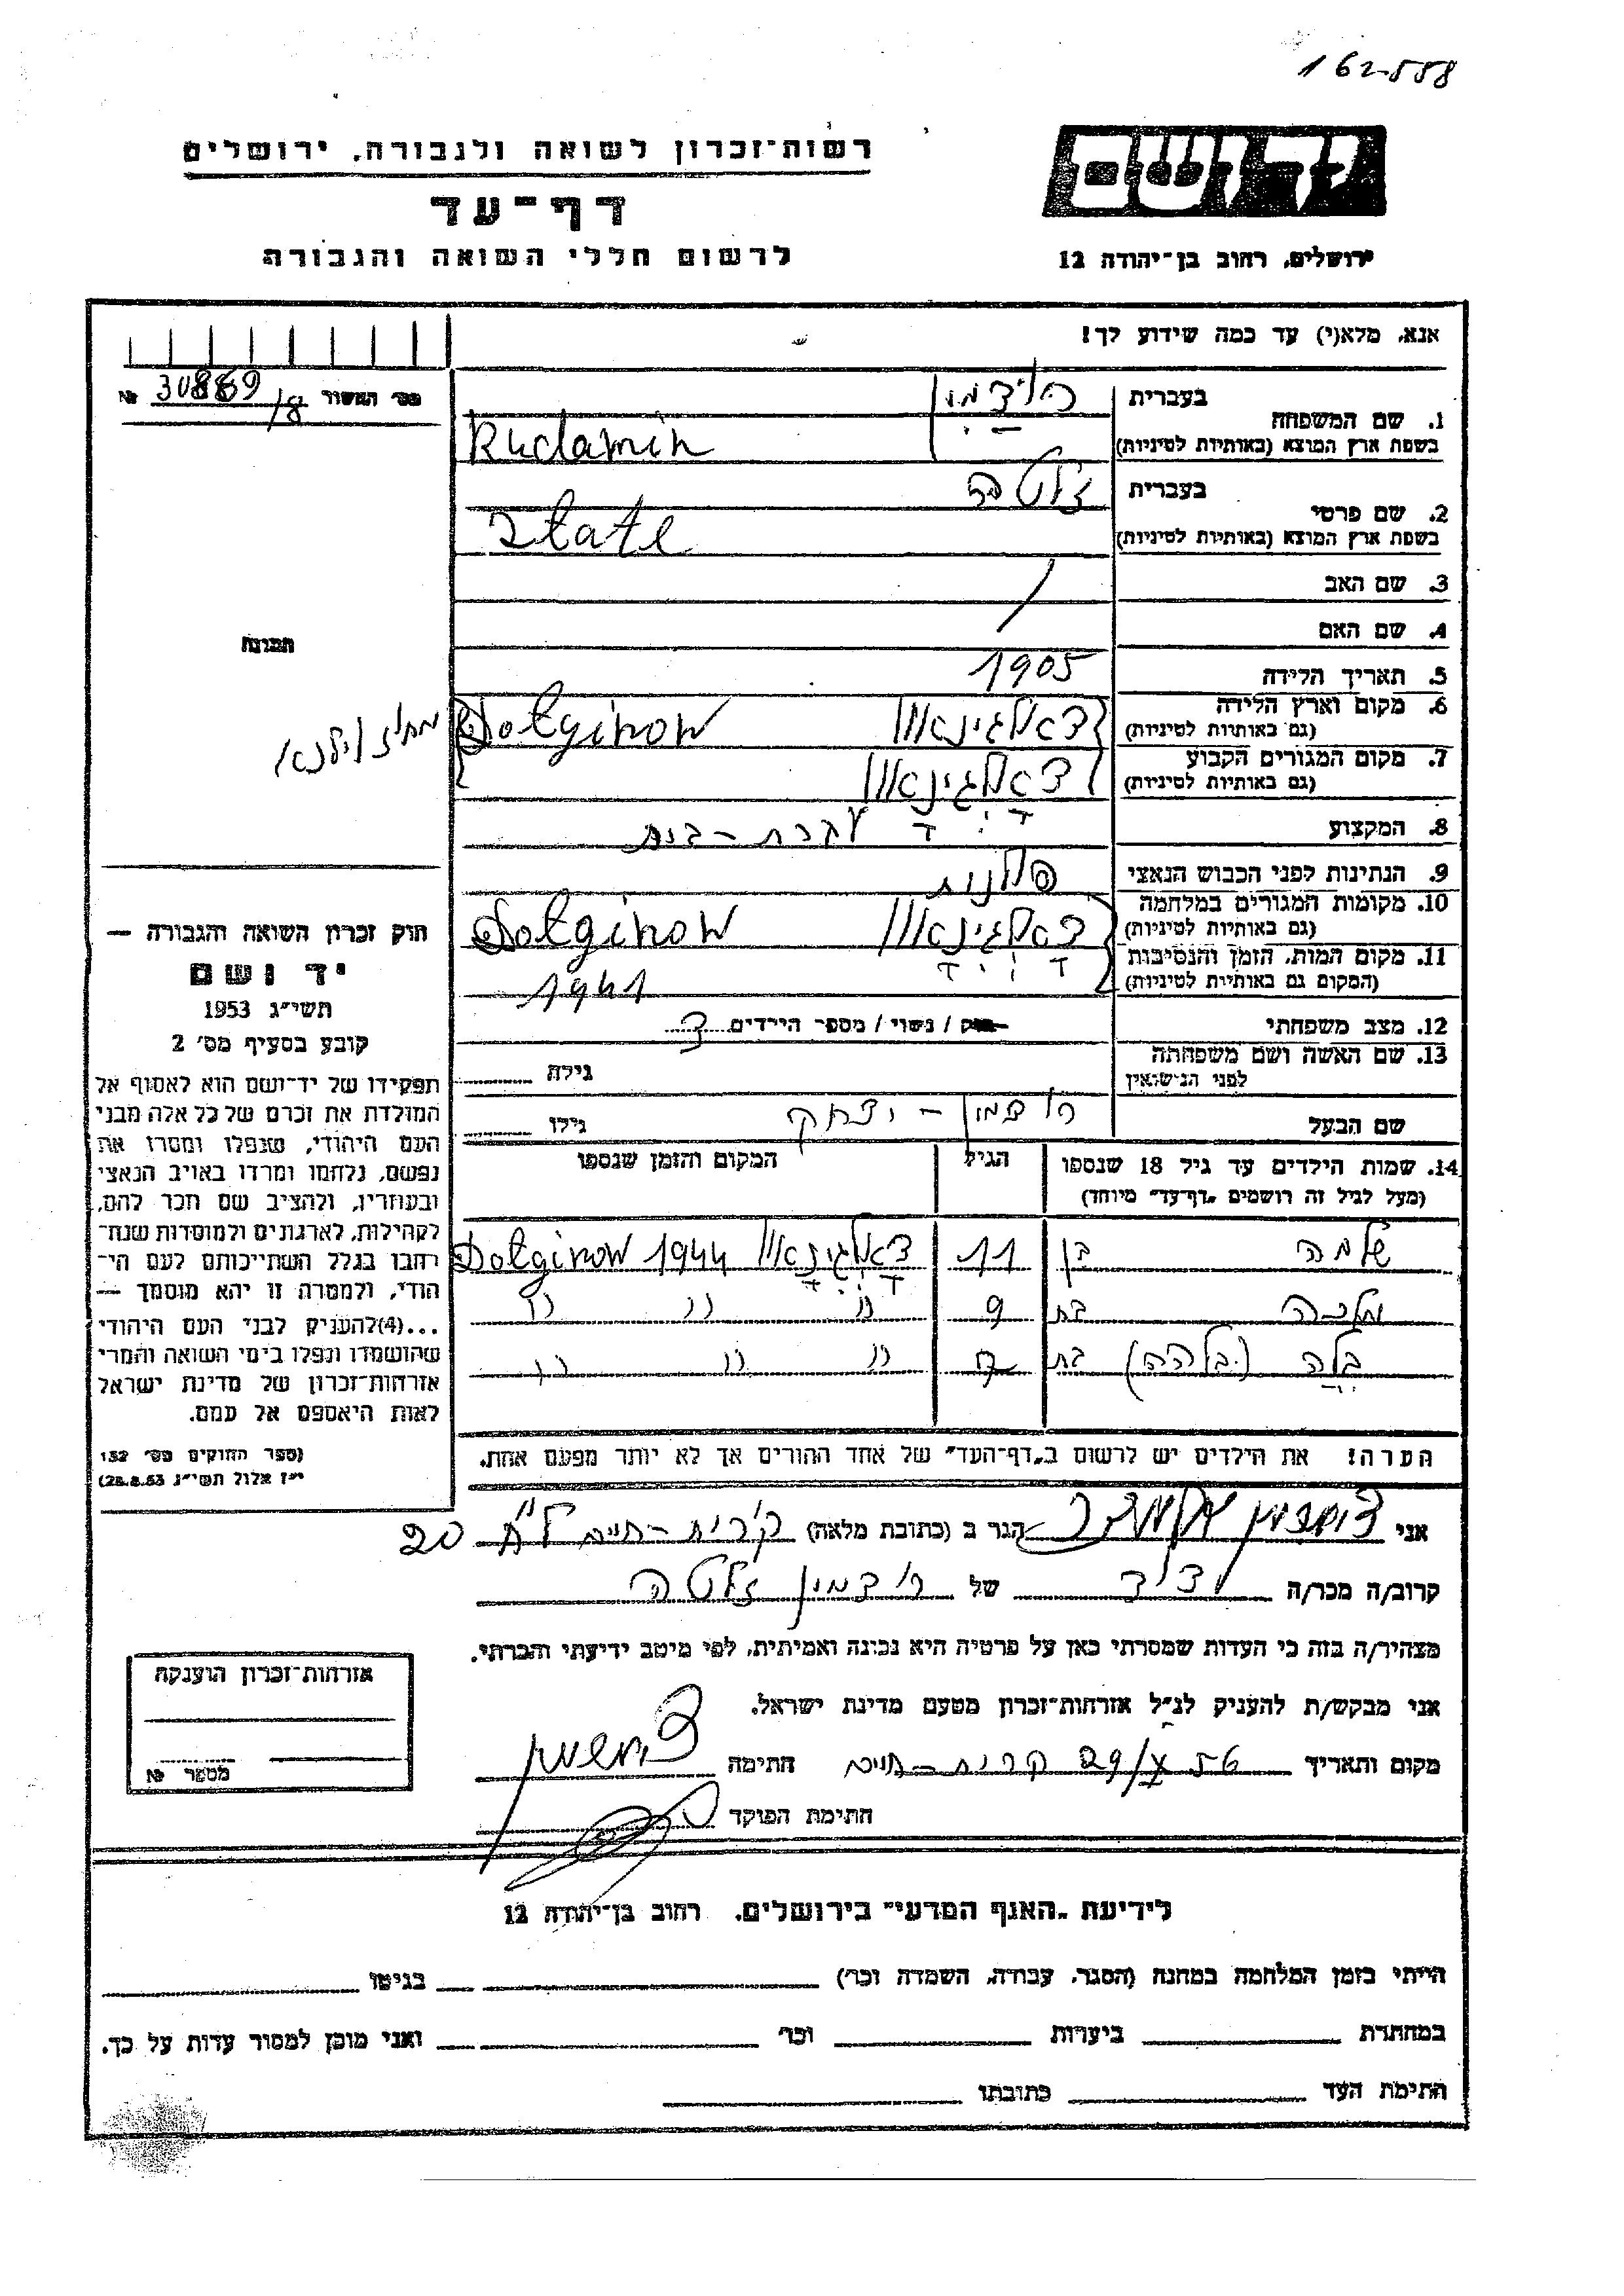 162-558
רשות־זכרון לשואה ולגבורה, ירושלים
דף־עד
לרשום חללי השואה והגבורה
יד ושם
ירושלים, רחוב בן־יהודה 12
אנא, מלא(י) עד כמה שידוע לך!
מס׳ המשור
בעברית
1. שם המשפחה
בשפת ארץ המוצא (באותיות לטיניות) Rudamin
בעברית זלטה
2. שם פרטי
בשפת ארץ המוצא (באותיות לטיניות) Zlate
3. שם האב /
4. שם האם
תמונה
5. תאריך הלידה 1905
6. מקום וארץ הלידה
(גם באותיות לטיניות) דאלגינאוו Dołginow מחוז וילנא
7. מקום המגורים הקבוע
(גם באותיות לטיניות) דאלגינאוו
8. המקצוע עקרת-בית
9. הנתינות לפני הכבוש הנאצי פולנית
10. מקומות המגורים במלחמה
(גם באותיות לטיניות) דאלגינאוו Dołginow
11. מקום המות, הזמן והנסיבות
(המקום גם באותיות לטיניות) 1941
12. מצב משפחתי
רווק / נשוי / מספר הילדים 3
13. שם האשה ושם משפחתה
לפני הנישואין
גילה
שם הבעל רודמין - יצחק גילו
14. שמות הילדים עד גיל 18 שנספו הגיל המקום והזמן שנספו
(מעל לגיל זה רושמים „דף־עד״ מיוחד)
שלמה בן 11 דאלגינאוו Dołginow 1944
מלכה בת 9 " " "
בלה (בלהה) בת " " "
הערה! את הילדים יש לרשום ב„דף־העד״ של אחד ההורים אך לא יותר מפעם אחת.
חוק זכרון השואה והגבורה —
יד ושם
תשי״ג 1953
קובע בסעיף מס׳ 2
תפקידו של יד־ושם הוא לאסוף אל
המולדת את זכרם של כל אלה מבני
העם היהודי, שנפלו ומסרו את
נפשם, נלחמו ומרדו באויב הנאצי
ובעוזריו, ולהציב שם וזכר להם,
לקהילות, לארגונים ולמוסדות שנח־
רחבו בגלל השתייכותם לעם הי־
הודי, ולמטרה זו יהא מוסמך —
...(4)להעניק לבני העם היהודי
שהושמדו ונפלו בימי השואה והמרי
אזרחות־זכרון של מדינת ישראל
לאות היאספם אל עמם.
(ספר החוקים מס׳ 132
י״ז אלול תשי״ג 28.8.53)
אני הגר ב (כתובת מלאה) קרית-חיים 20
קרוב/ה מכר/ה ידיד של רודמין זלטה
מצהיר/ה בזה כי העדות שמסרתי כאן על פרטיה היא נכונה ואמיתית, לפי מיטב ידיעתי והכרתי.
אני מבקש/ת להעניק לנ״ל אזרחות־זכרון מטעם מדינת ישראל.
מקום ותאריך קרית-חיים 29/X 56 חתימה
חתימת הפוקד
אזרחות־זכרון הוענקה
מספר №
לידיעת „האגף המדעי״ בירושלים, רחוב בן־יהודה 12
הייתי בזמן המלחמה במחנה (הסגר, עבודה, השמדה וכר׳) בגיטו
במחתרת ביערות וכר׳ ואני מוכן למסור עדות על כך.
חתימת העד כתובתו